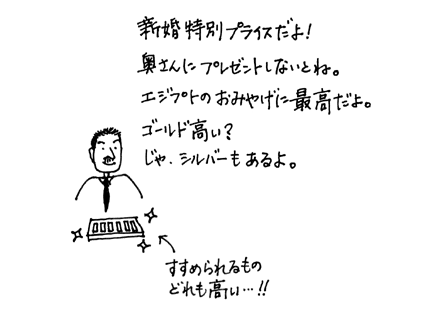 新婚特別プライスだよ!
奥さんにプレゼントしないとね。
エジプトのおみやげに最高だよ。
ゴールド高い?
じゃ、シルバーもあるよ。
すすめられるもの
どれも高い…!!